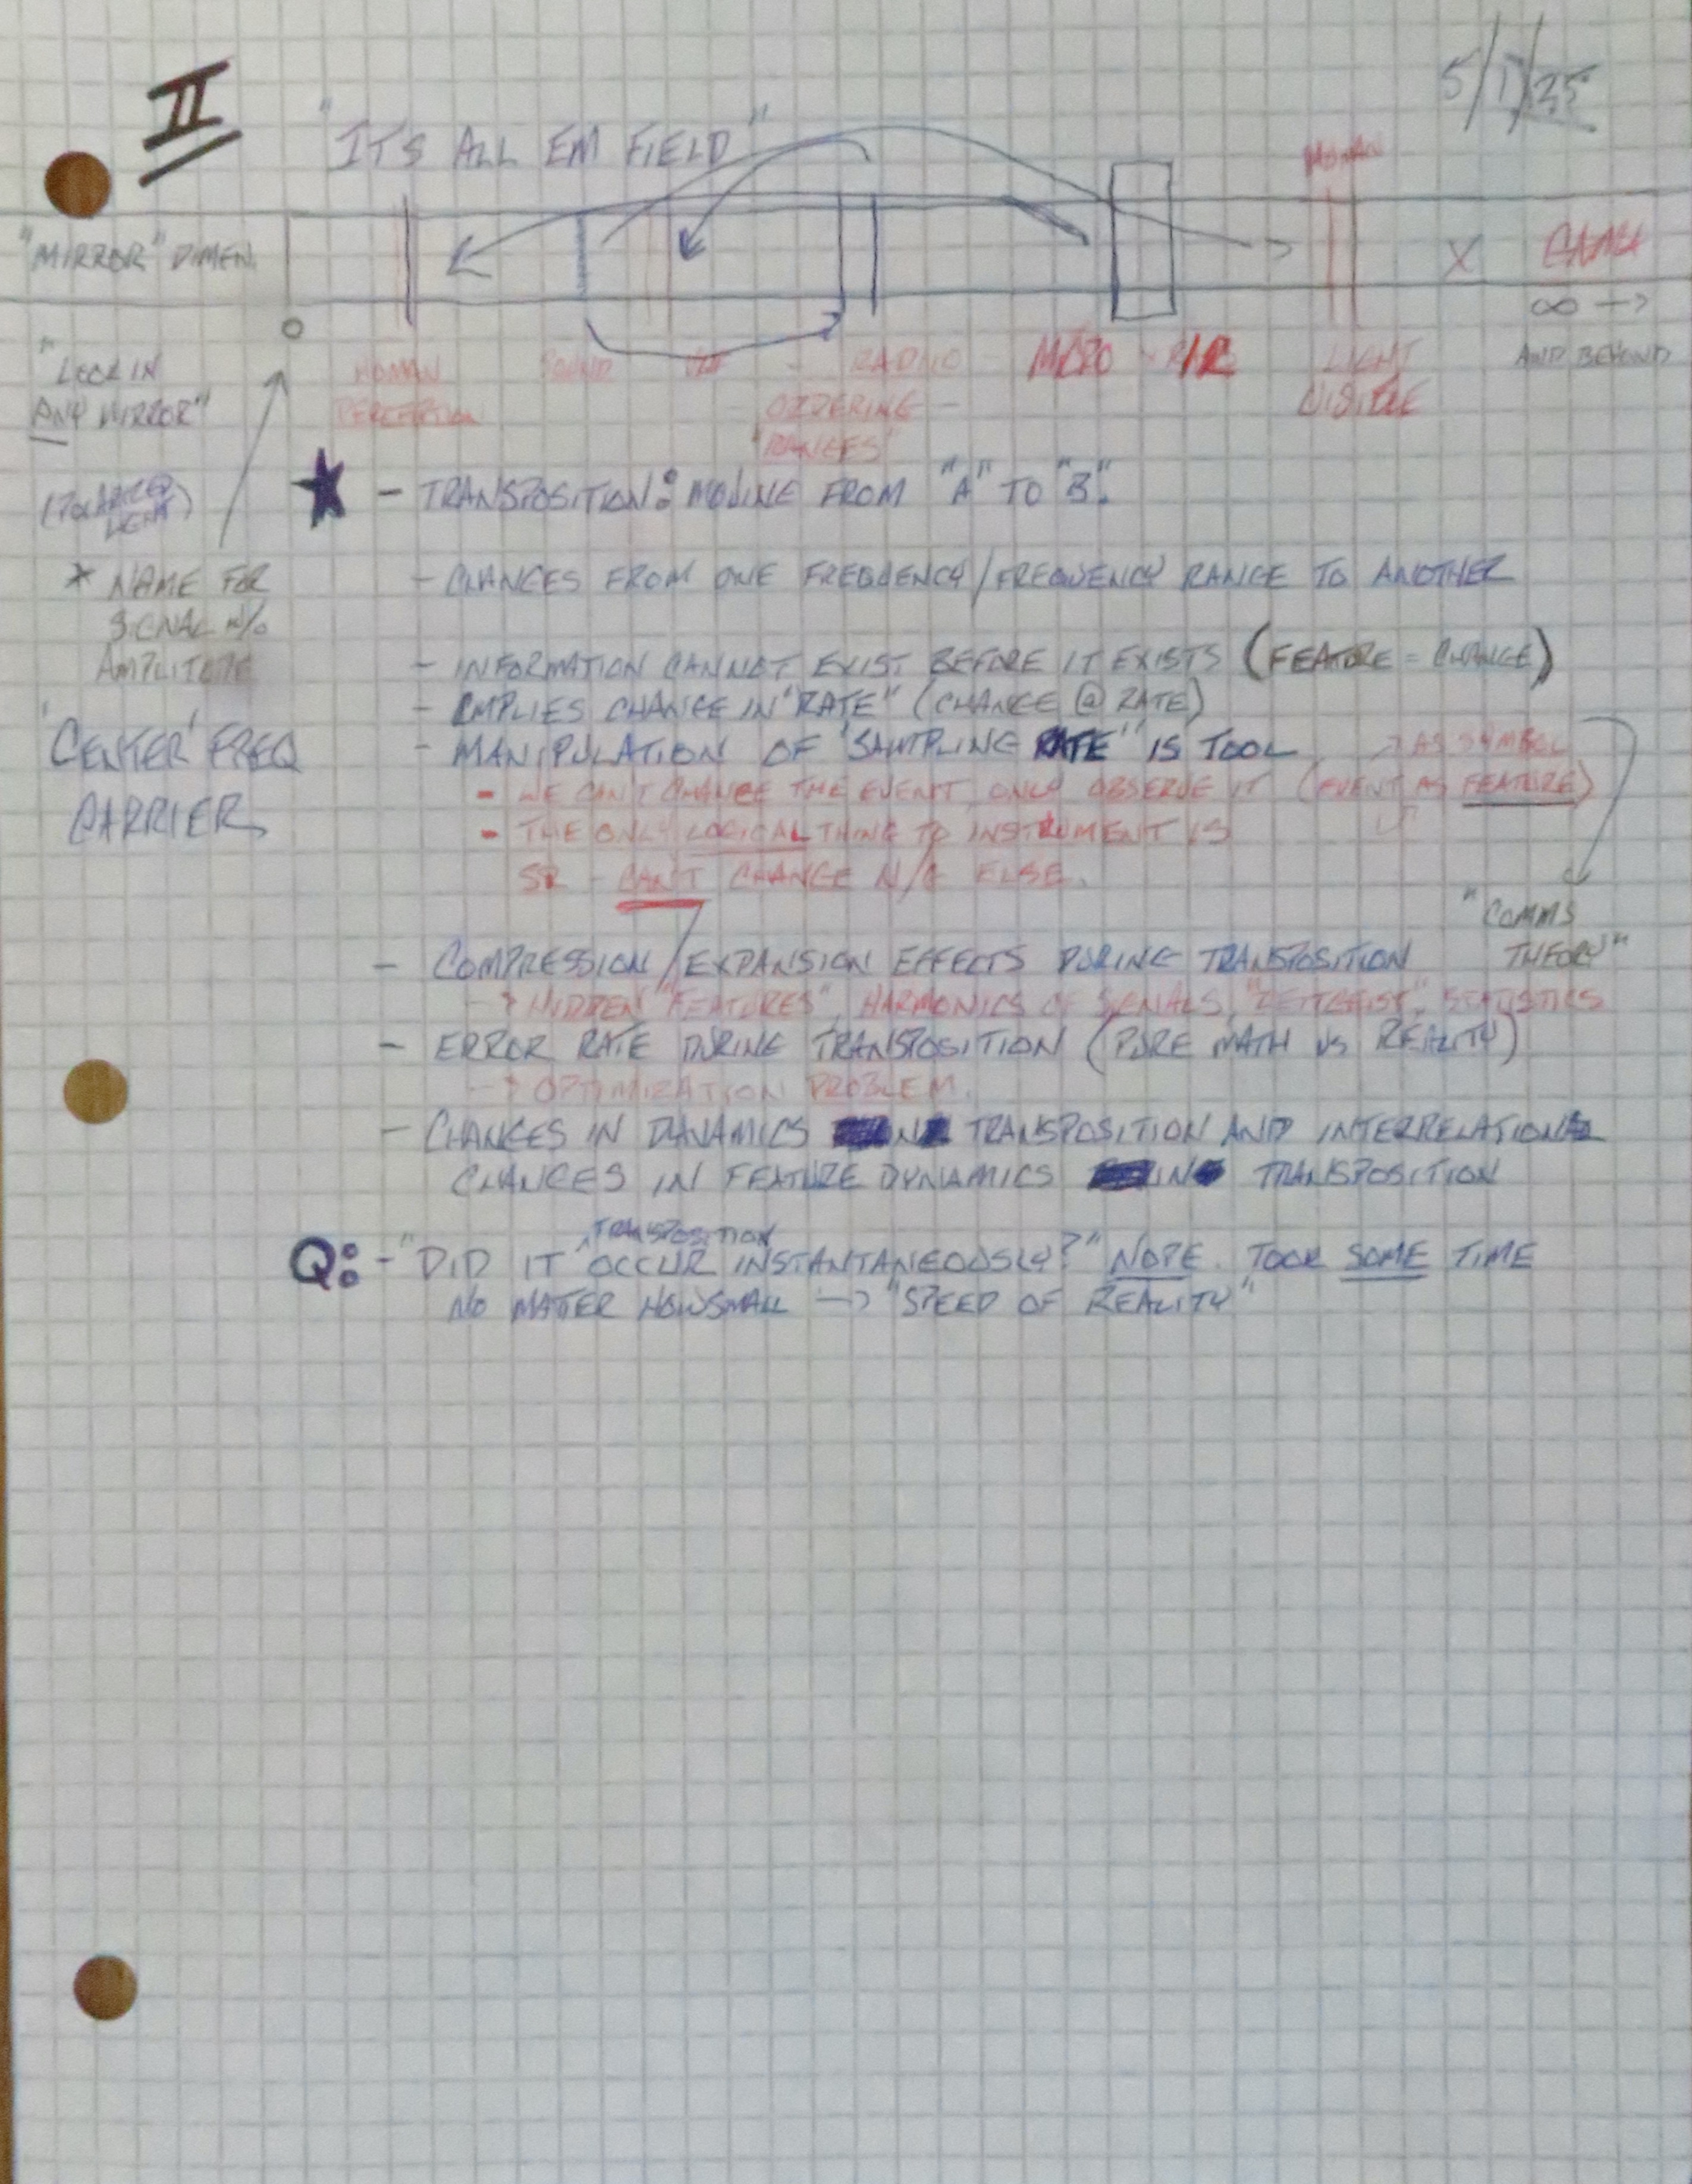 II
5/1/25
"IT'S ALL EM FIELD"
HUMAN
"MIRROR" DIMEN.
X
GAMMA
0
∞ →
"LOOK IN
ANY MIRROR"
HUMAN
PERCEPTION
SOUND
RADIO
MICRO
LIGHT
VISIBLE
AND BEYOND
- ORDERING -
"RANGES"
(POLARIZED
LIGHT)
★ - TRANSPOSITION: MOVING FROM "A" TO "B".
* NAME FOR
SIGNAL W/O
AMPLITUDE
'CENTER' FREQ
CARRIER
- CHANGES FROM ONE FREQUENCY/FREQUENCY RANGE TO ANOTHER
- INFORMATION CANNOT EXIST BEFORE IT EXISTS (FEATURE = CHANGE)
- IMPLIES CHANGE IN "RATE" (CHANGE @ RATE)
- MANIPULATION OF "SAMPLING RATE" IS TOOL
→ AS SYMBOL
- WE CAN'T CHANGE THE EVENT, ONLY OBSERVE IT (EVENT AS FEATURE)
- THE ONLY LOGICAL THING TO INSTRUMENT IS
SR - CAN'T CHANGE N/G ELSE.
"COMMS
THEORY"
- COMPRESSION/EXPANSION EFFECTS DURING TRANSPOSITION
→ HIDDEN "FEATURES", HARMONICS OF SIGNALS, "ZEITGEIST", STATISTICS
- ERROR RATE DURING TRANSPOSITION (PURE MATH VS REALITY)
→ OPTIMIZATION PROBLEM.
- CHANGES IN DYNAMICS IN TRANSPOSITION AND INTERRELATION
CHANGES IN FEATURE DYNAMICS IN TRANSPOSITION
TRANSPOSITION
Q: - "DID IT OCCUR INSTANTANEOUSLY?" NOPE. TOOK SOME TIME
NO MATTER HOW SMALL → "SPEED OF REALITY"